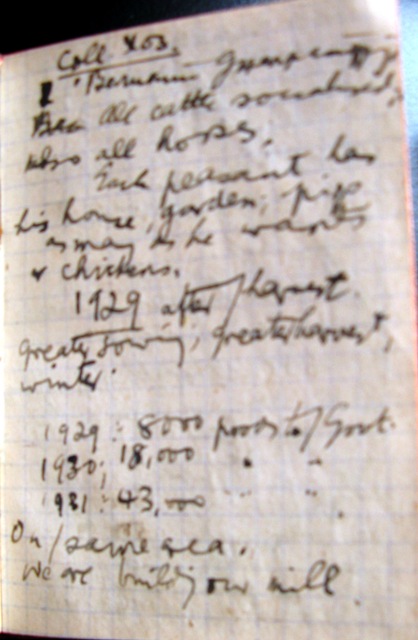 Coll. Xoz.
Been All cattle socialised,
also all horses.
Each peasant has
his house, garden, pigs
as many as he wants
& chickens.
1929 after / harvest.
greater sowing, greater harvest,
winter.
1929 : 8000 poods to / Govt.
1930 ; 18,000 " "
1931 : 43,000 " "
On / same area.
We are building our mill.